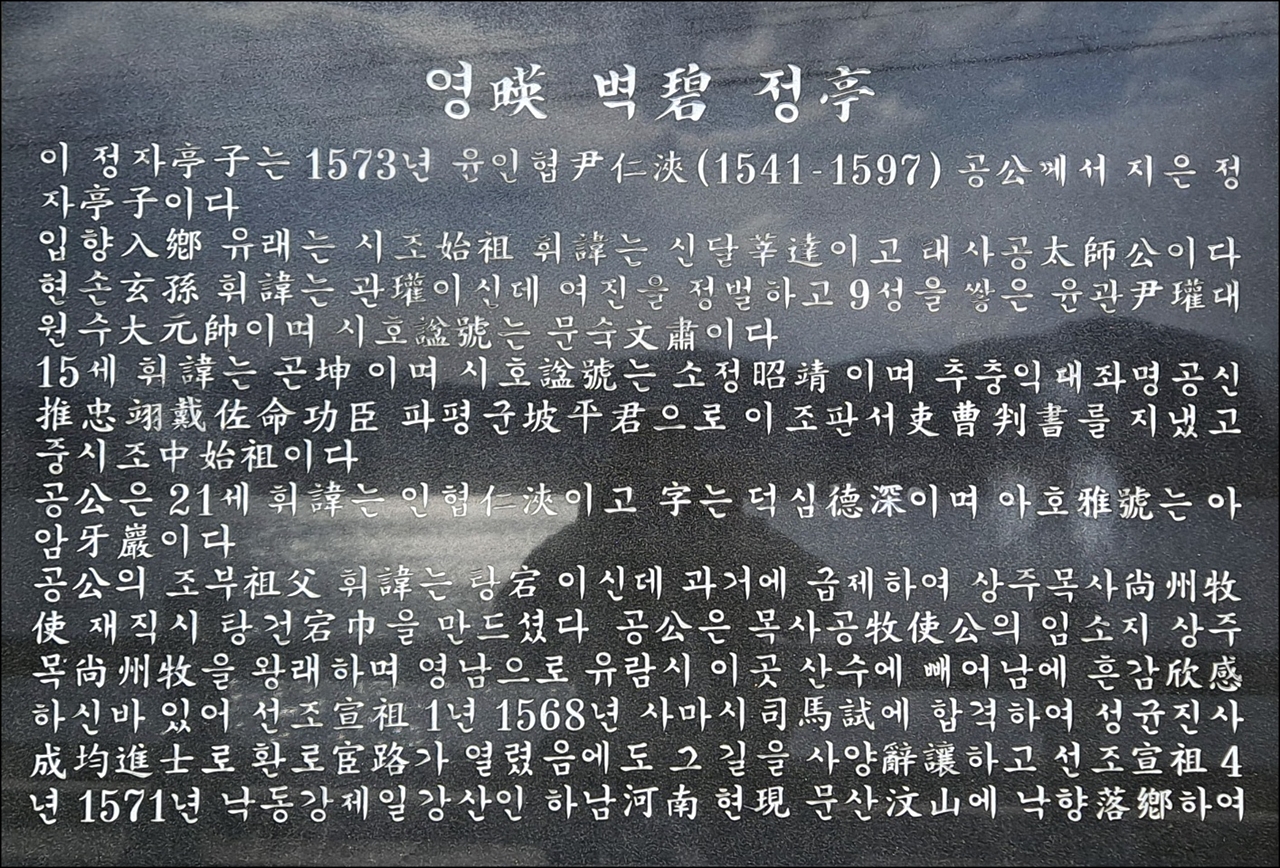 영暎 벽碧 정亭
이 정자亭子는 1573년 윤인협尹仁浹(1541-1597) 공公께서 지은 정
자亭子이다
입향入鄕 유래는 시조始祖 휘諱는 신달莘達이고 태사공太師公이다
현손玄孫 휘諱는 관瓘이신데 여진을 정벌하고 9성을 쌓은 윤관尹瓘대
원수大元帥이며 시호諡號는 문숙文肅이다
15세 휘諱는 곤坤 이며 시호諡號는 소정昭靖 이며 추충익대좌명공신
推忠翊戴佐命功臣 파평군坡平君으로 이조판서吏曹判書를 지냈고
중시조中始祖이다
공公은 21세 휘諱는 인협仁浹이고 字는 덕심德深이며 아호雅號는 아
암牙巖이다
공公의 조부祖父 휘諱는 탕宕 이신데 과거에 급제하여 상주목사尙州牧
使 재직시 탕건宕巾을 만드셨다 공公은 목사공牧使公의 임소지 상주
목尙州牧을 왕래하며 영남으로 유람시 이곳 산수에 빼어남에 흔감欣感
하신바 있어 선조宣祖 1년 1568년 사마시司馬試에 합격하여 성균진사
成均進士로 환로宦路가 열렸음에도 그 길을 사양辭讓하고 선조宣祖 4
년 1571년 낙동강제일강산인 하남河南 현現 문산汶山에 낙향落鄕하여